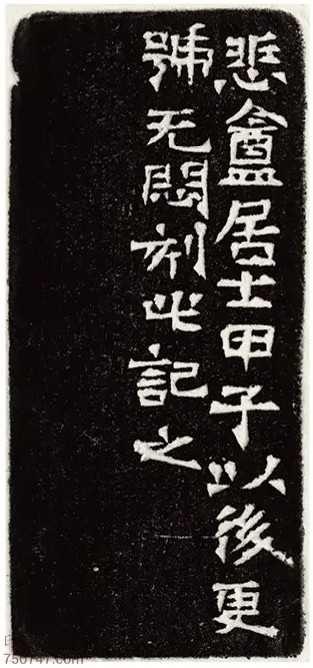 悲盦居士甲子以後更
號无悶刻此記之
750747.com